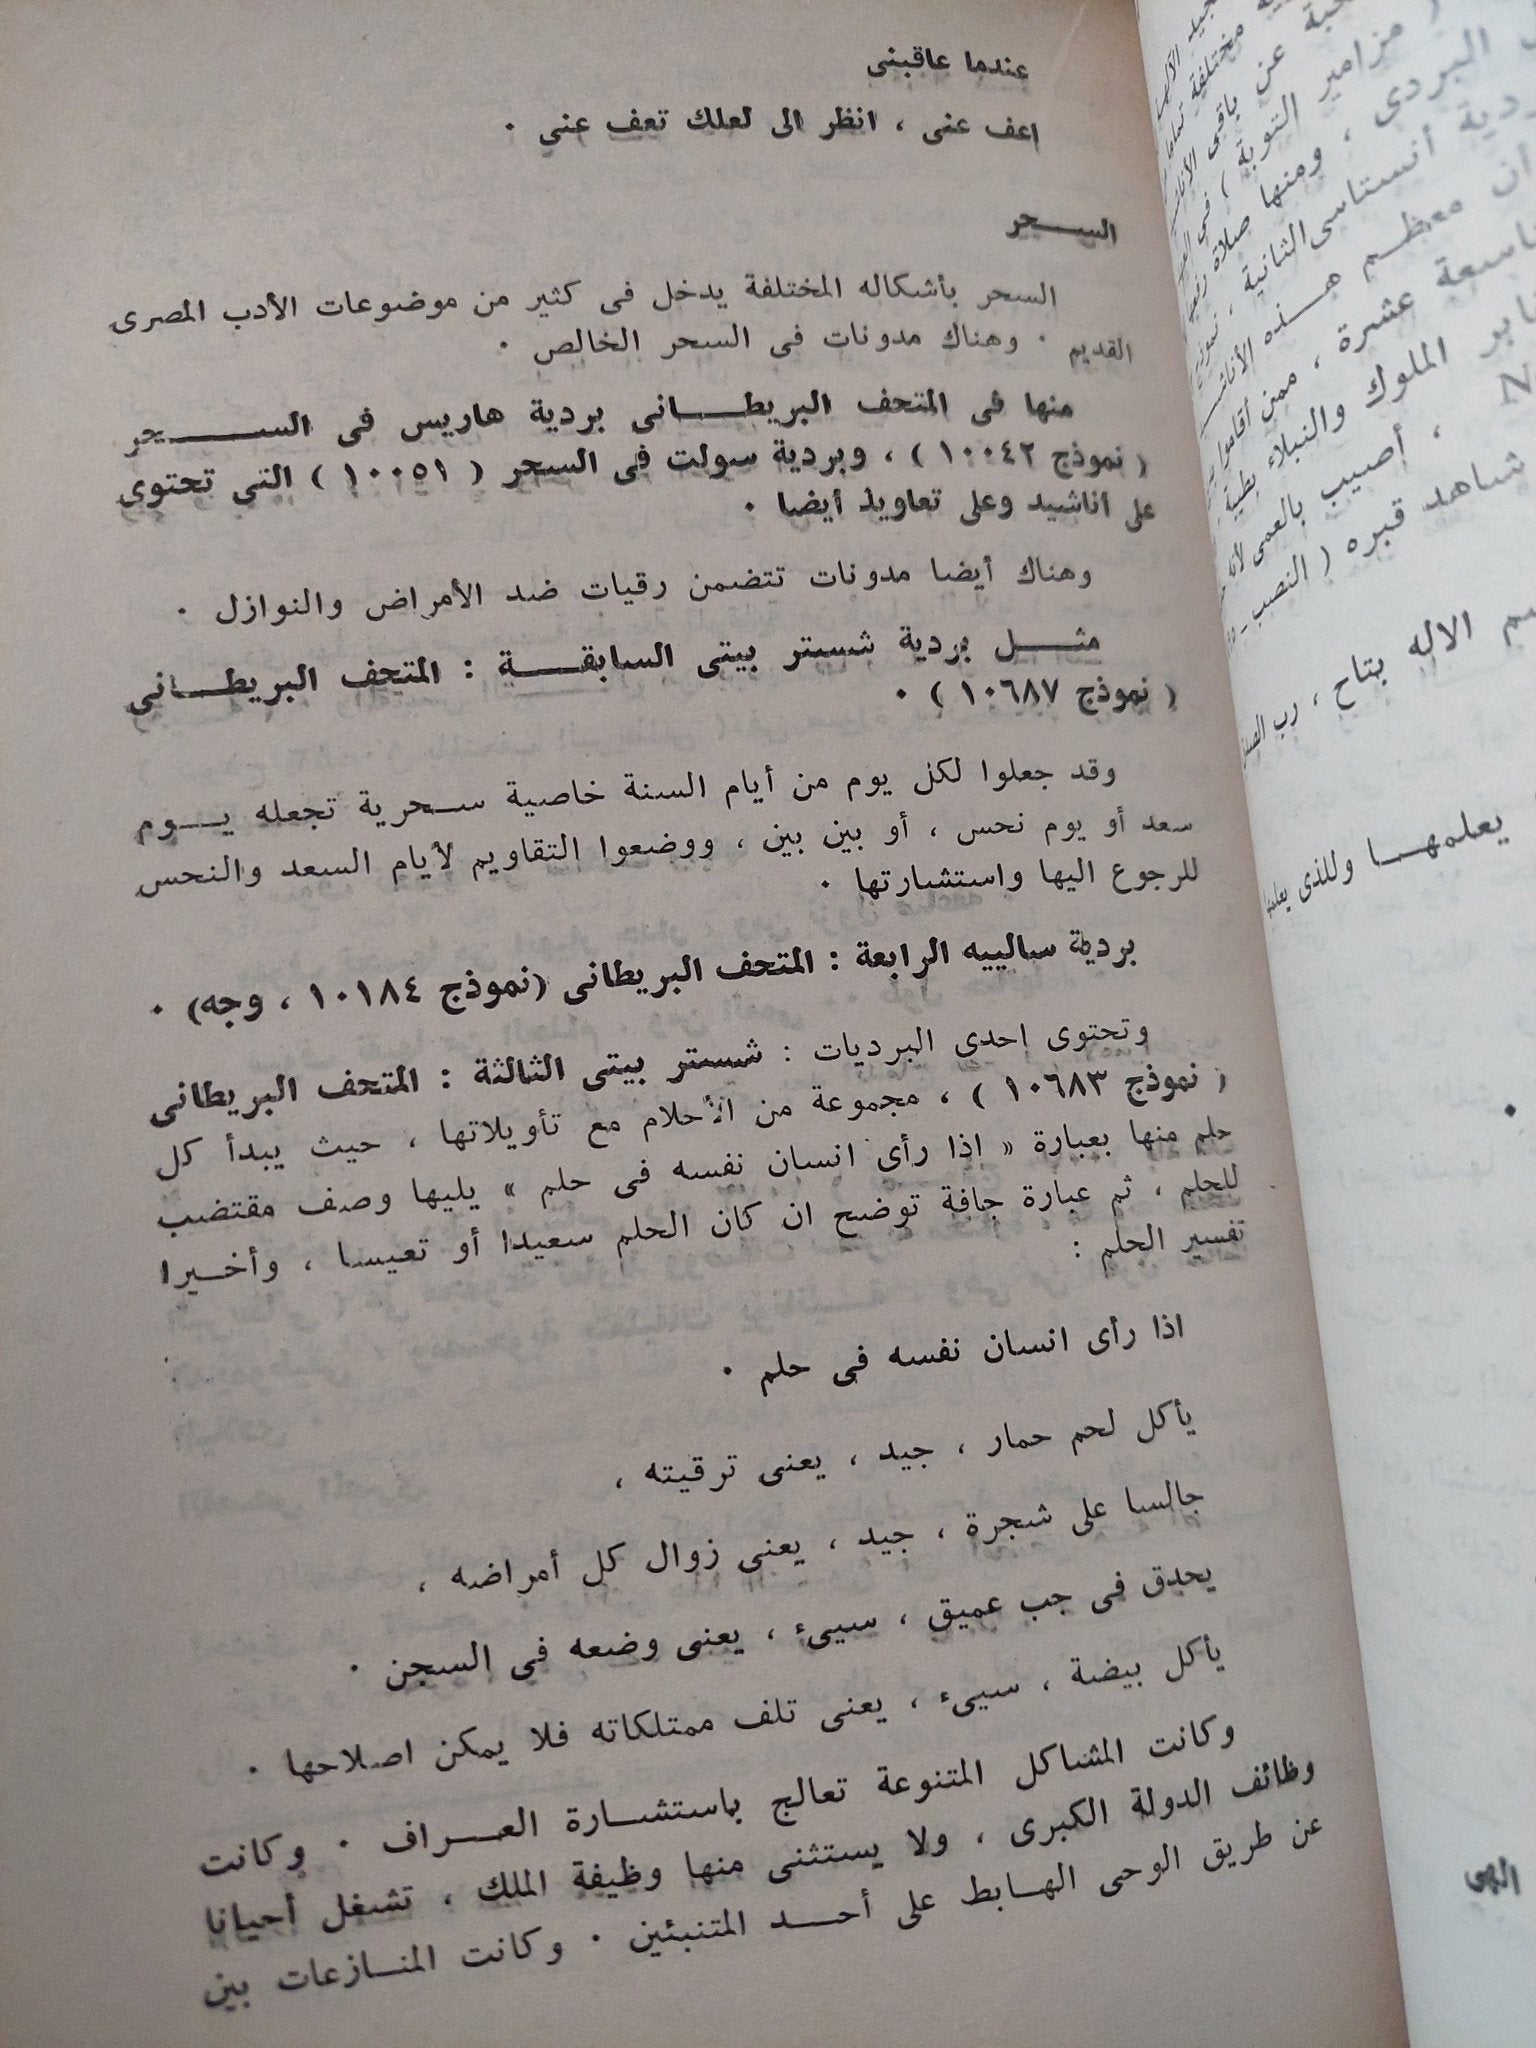 عندما عاقبنى
اعف عنى ، انظر الى لعلك تعف عنى ·
الســـحر
السحر بأشكاله المختلفة يدخل فى كثير من موضوعات الأدب المصرى
القديم · وهناك مدونات فى السحر الخالص ·
منها فى المتحف البريطـــانى بردية هاريس فى الســـــحر
( نموذج ١٠٠٤٢ ) ، وبردية سولت فى السحر ( ١٠٠٥١ ) التى تحتوى
على أناشيد وعلى تعاويذ أيضا ·
وهناك أيضا مدونات تتضمن رقيات ضد الأمراض والنوازل ·
مثـــل بردية شستر بيتى السابقـــة : المتحف البريطـــانى
( نموذج ١٠٦٨٧ ) ·
وقد جعلوا لكل يوم من أيام السنة خاصية ســحرية تجعله يــوم
سعد أو يوم نحس ، أو بين بين ، ووضعوا التقاويم لأيام السعد والنحس
للرجوع اليها واستشارتها ·
بردية سالييه الرابعة : المتحف البريطانى (نموذج ١٠١٨٤ ، وجه) ·
وتحتوى احدى البرديات : شستر بيتى الثالثة : المتحف البريطانى
( نموذج ١٠٦٨٣ ) ، مجموعة من الأحلام مع تأويلاتها ، حيث يبدأ كل
حلم منها بعبارة « اذا رأى انسان نفسه فى حلم » يليها وصف مقتضب
للحلم ، ثم عبارة جافة توضح ان كان الحلم سعيدا أو تعيسا ، وأخــيرا
تفسير الحلم :
اذا رأى انسان نفسه فى حلم ·
يأكل لحم حمار ، جيد ، يعنى ترقيته ،
جالسا على شجرة ، جيد ، يعنى زوال كل أمراضه ،
يحدق فى جب عميق ، سيىء ، يعنى وضعه فى السجن ·
يأكل بيضة ، سيىء ، يعنى تلف ممتلكاته فلا يمكن اصلاحها ·
وكانت المشاكل المتنوعة تعالج باستشــارة العــراف · وكانت
وظائف الدولة الكبرى ، ولا يستثنى منها وظيفة الملك ، تشغل أحيانا
عن طريق الوحى الهــابط على أحــد المتنبئين · وكانت المنــازعات بين
مختلفة
عن باقى
( مزامير التوبة ) فى
البردى ، ومنها صلاة
أنستاسى الثانية ،
أن معظــم هــذه
عشرة ، ممن أقاموا
الملوك والنبلاء بطيبة
N
، أصيب بالعمى لأنه
شاهد قبره ( النصب -
الاله بتاح ، رب
يعلمهــا وللذى
الهى